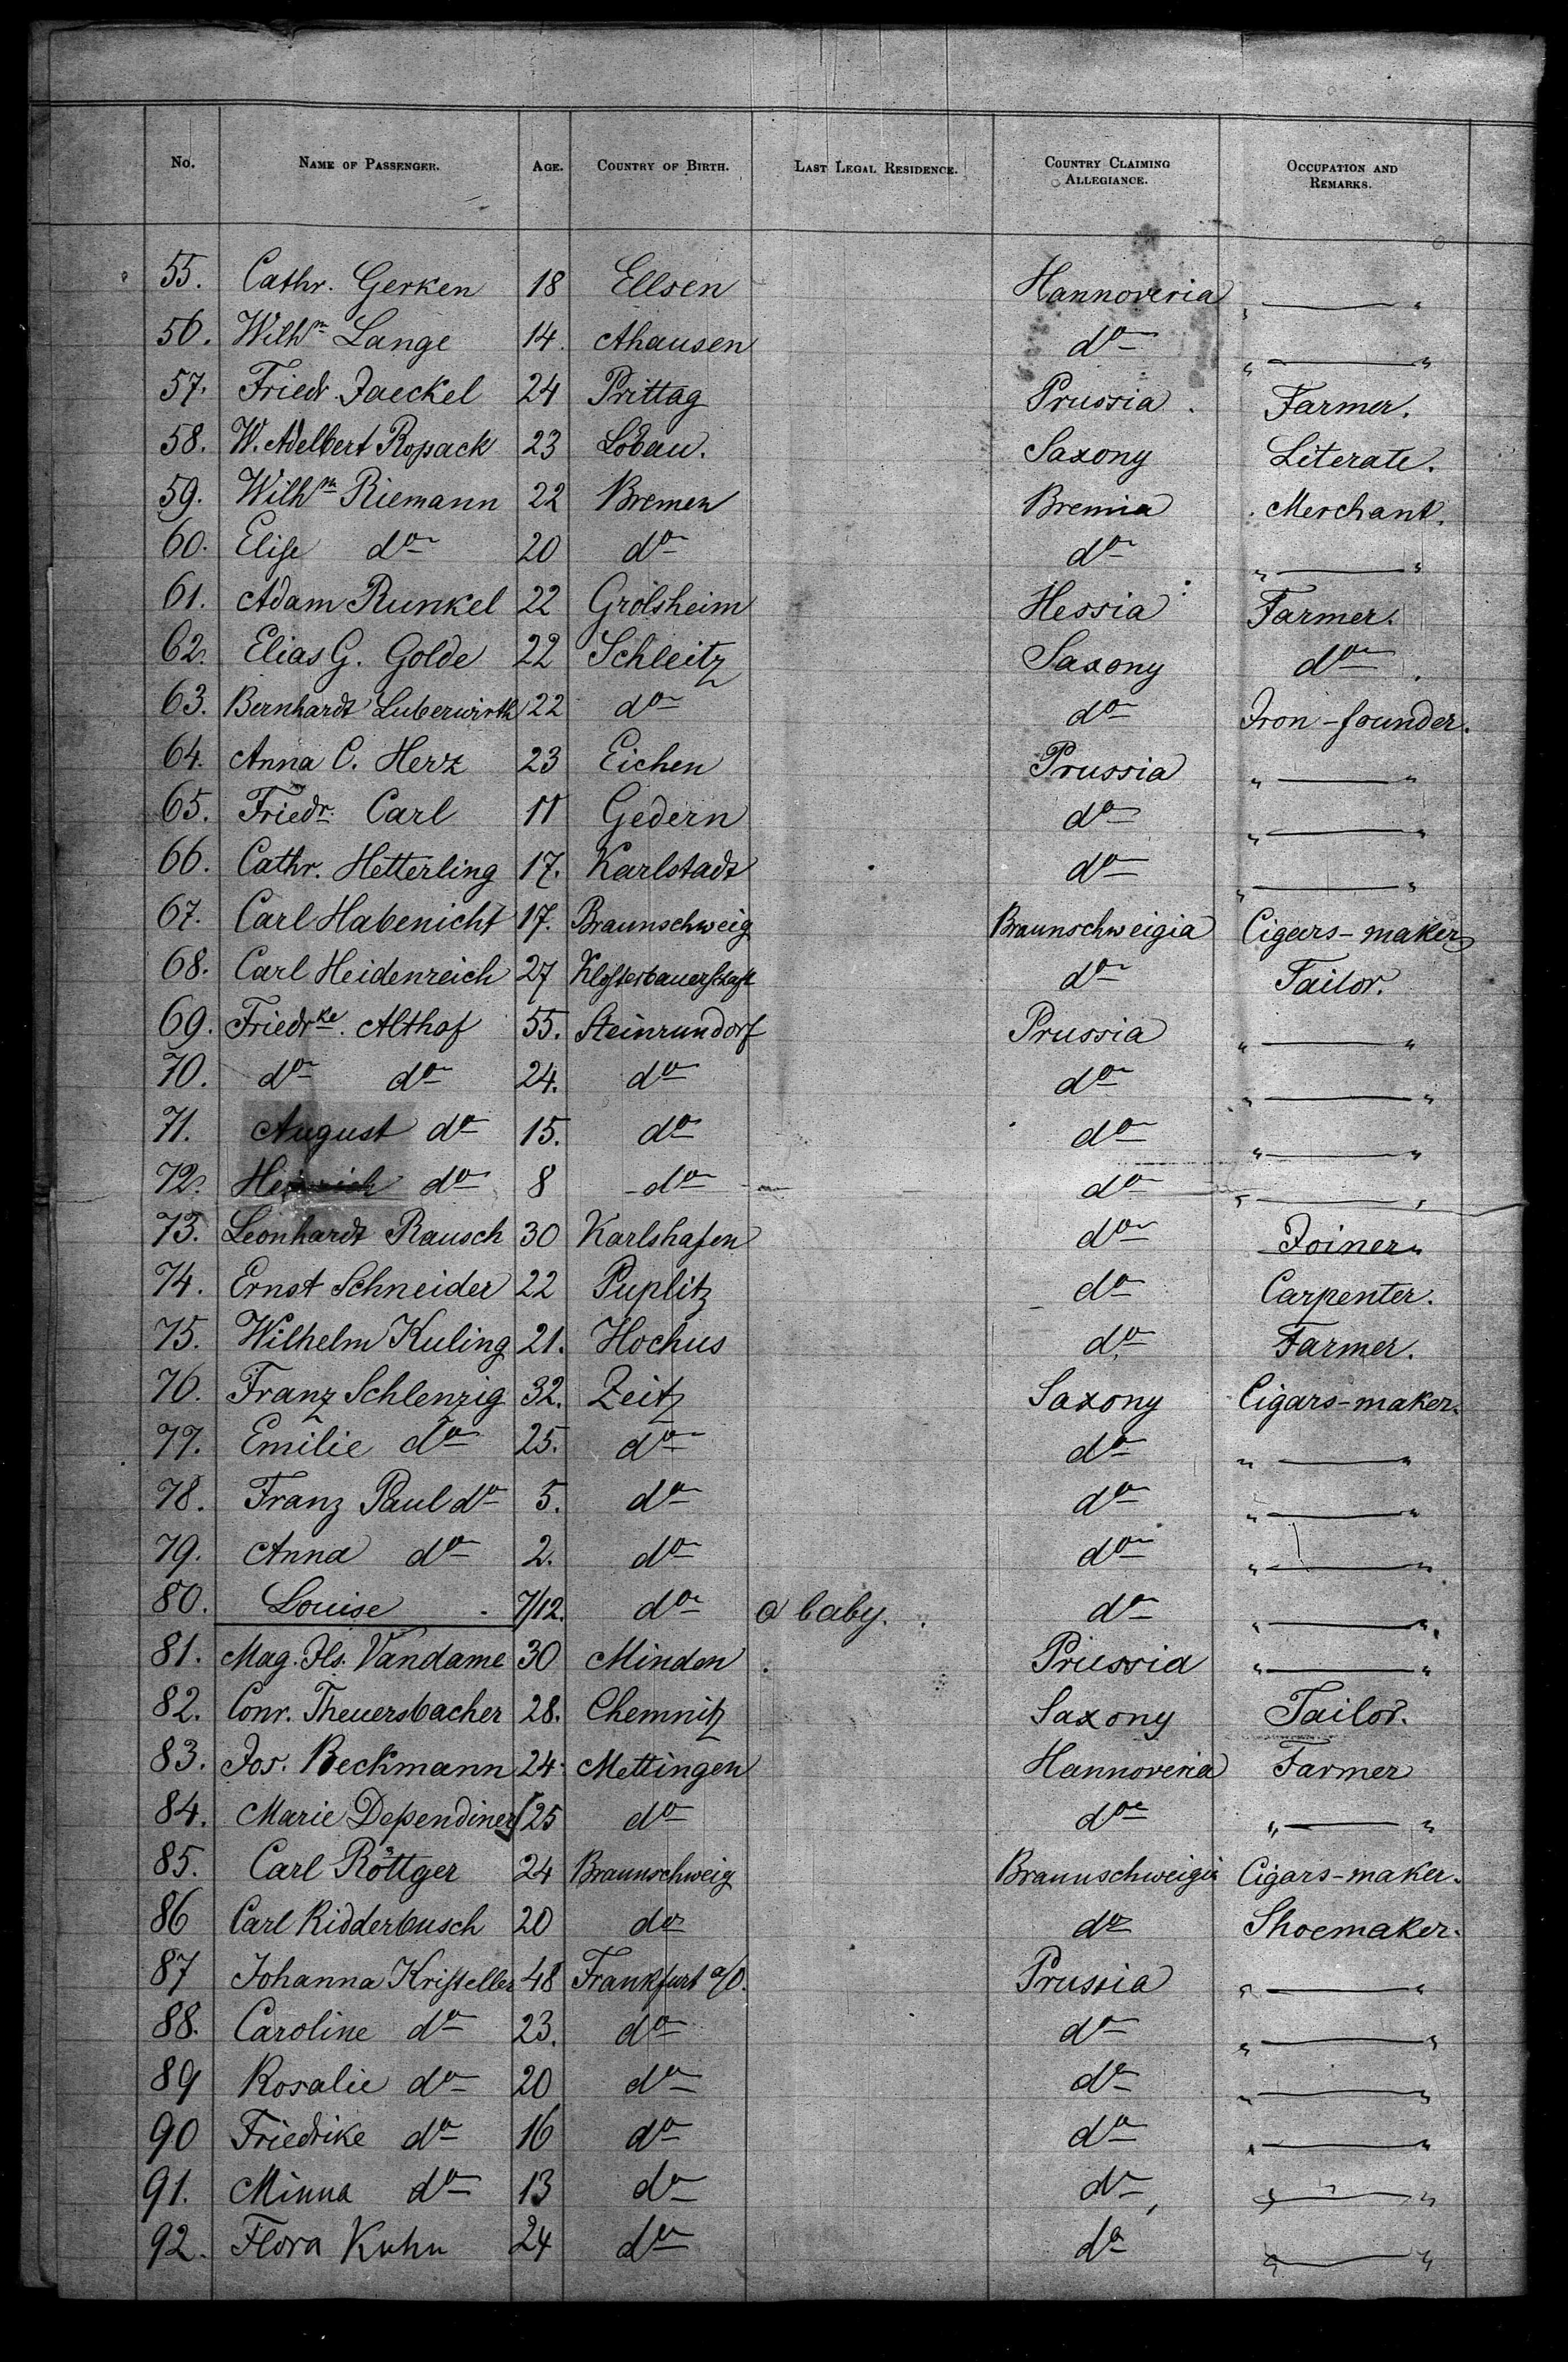 No. NAME OF PASSENGER. AGE. COUNTRY OF BIRTH. LAST LEGAL RESIDENCE. COUNTRY CLAIMING ALLEGIANCE. OCCUPATION AND REMARKS.
55. Cathr. Gerken 18 Ellsen Hannoveria " — "
56. Wilhm Lange 14. Ahausen do " — "
57. Friedr. Jaeckel 24 Prittag Prussia. Farmer.
58. W. Adelbert Ropack 23 Löbau. Saxony Literate.
59. Wilhm Riemann 22 Bremen Bremia Merchant.
60. Elise do 20 do do " — "
61. Adam Runkel 22 Grolsheim Hessia Farmer.
62. Elias G. Golde 22 Schleitz Saxony do.
63. Bernhardt Luberwirth 22 do do Iron-founder.
64. Anna C. Herz 23 Eichen Prussia " — "
65. Friedr. Carl 11 Gedern do " — "
66. Cathr. Hetterling 17. Karlstadt do " — "
67. Carl Habenicht 17. Braunschweig Braunschweigia Cigars-maker
68. Carl Heidenreich 27 Klosterbauerschaft do Tailor.
69. Friedrke. Althof 55. Steinrundorf Prussia " — "
70. do do 24. do do " — "
71. August do 15. do do " — "
72. Heinrich do 8 do do " — "
73. Leonhardt Rausch 30 Karlshafen do Joiner
74. Ernst Schneider 22 Puplitz do Carpenter.
75. Wilhelm Kuling 21. Hochus do Farmer.
76. Franz Schlenzig 32. Zeitz Saxony Cigars-maker.
77. Emilie do 25. do do " — "
78. Franz Paul do 5. do do " — "
79. Anna do 2. do do " — "
80. Louise 7/12. do a baby. do " — "
81. Mag. Fls. Vandame 30 Minden Prussia " — "
82. Conr. Theuersbacher 28. Chemnitz Saxony Tailor.
83. Jos. Beckmann 24. Mettingen Hannoveria Farmer
84. Marie Dependiner 25 do do " — "
85. Carl Röttger 24 Braunschweig Braunschweigia Cigars-maker.
86 Carl Ridderbusch 20 do do Shoemaker.
87 Johanna Kristeller 48 Frankfurt a/O. Prussia " — "
88. Caroline do 23. do do " — "
89 Rosalie do 20 do do " — "
90 Friedrike do 16 do do " — "
91. Minna do 13 do do " — "
92. Flora Kuhn 24 do do " — "